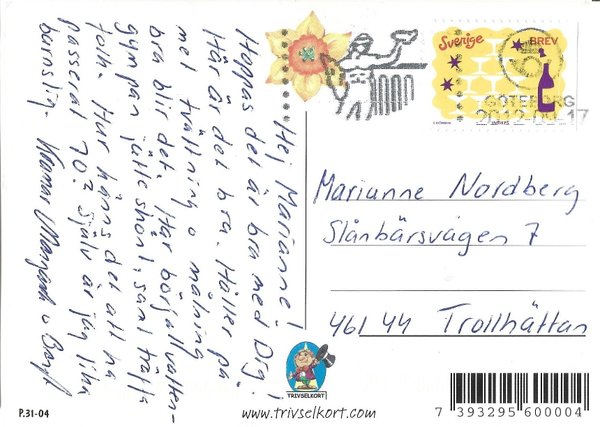 Hej Marianne!
Hoppas det är bra med Dig!
Här är det bra. Håller på
med tvättning o målning
bra blir det. Har börjat vatten-
gympan jätte skönt, samt träffa
folk. Hur känns det att ha
passerat 70? Själv är jag lika
barnslig. Kramar Margareta o Bengt
Sverige
BREV
GÖTEBORG
2012-09-17
Marianne Nordberg
Slånbärsvägen 7
461 44 Trollhättan
TRIVSELKORT
www.trivselkort.com
P.31-04
7 393295 600004